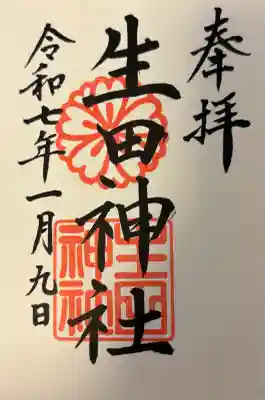 奉拝
生田神社
令和七年一月九日
生田
神社